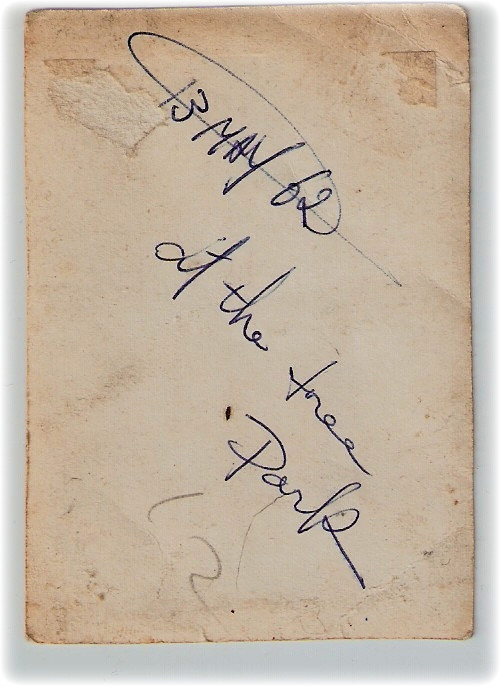 13 MAY 62
at the tree
Park